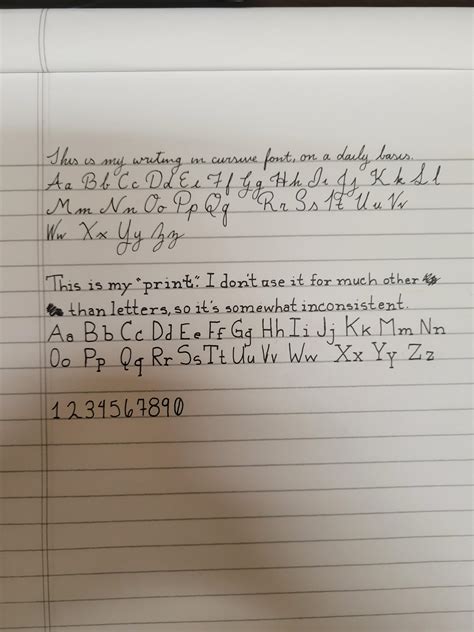 This is my writing in cursive font, on a daily basis.
Aa Bb Cc Dd Ee Ff Gg Hh Ii Jj Kk Ll
Mm Nn Oo Pp Qq Rr Ss Tt Uu Vv
Ww Xx Yy Zz
This is my "print". I don't use it for much other
than letters, so it's somewhat inconsistent.
Aa Bb Cc Dd Ee Ff Gg Hh Ii Jj Kk Mm Nn
Oo Pp Qq Rr Ss Tt Uu Vv Ww Xx Yy Zz
1234567890